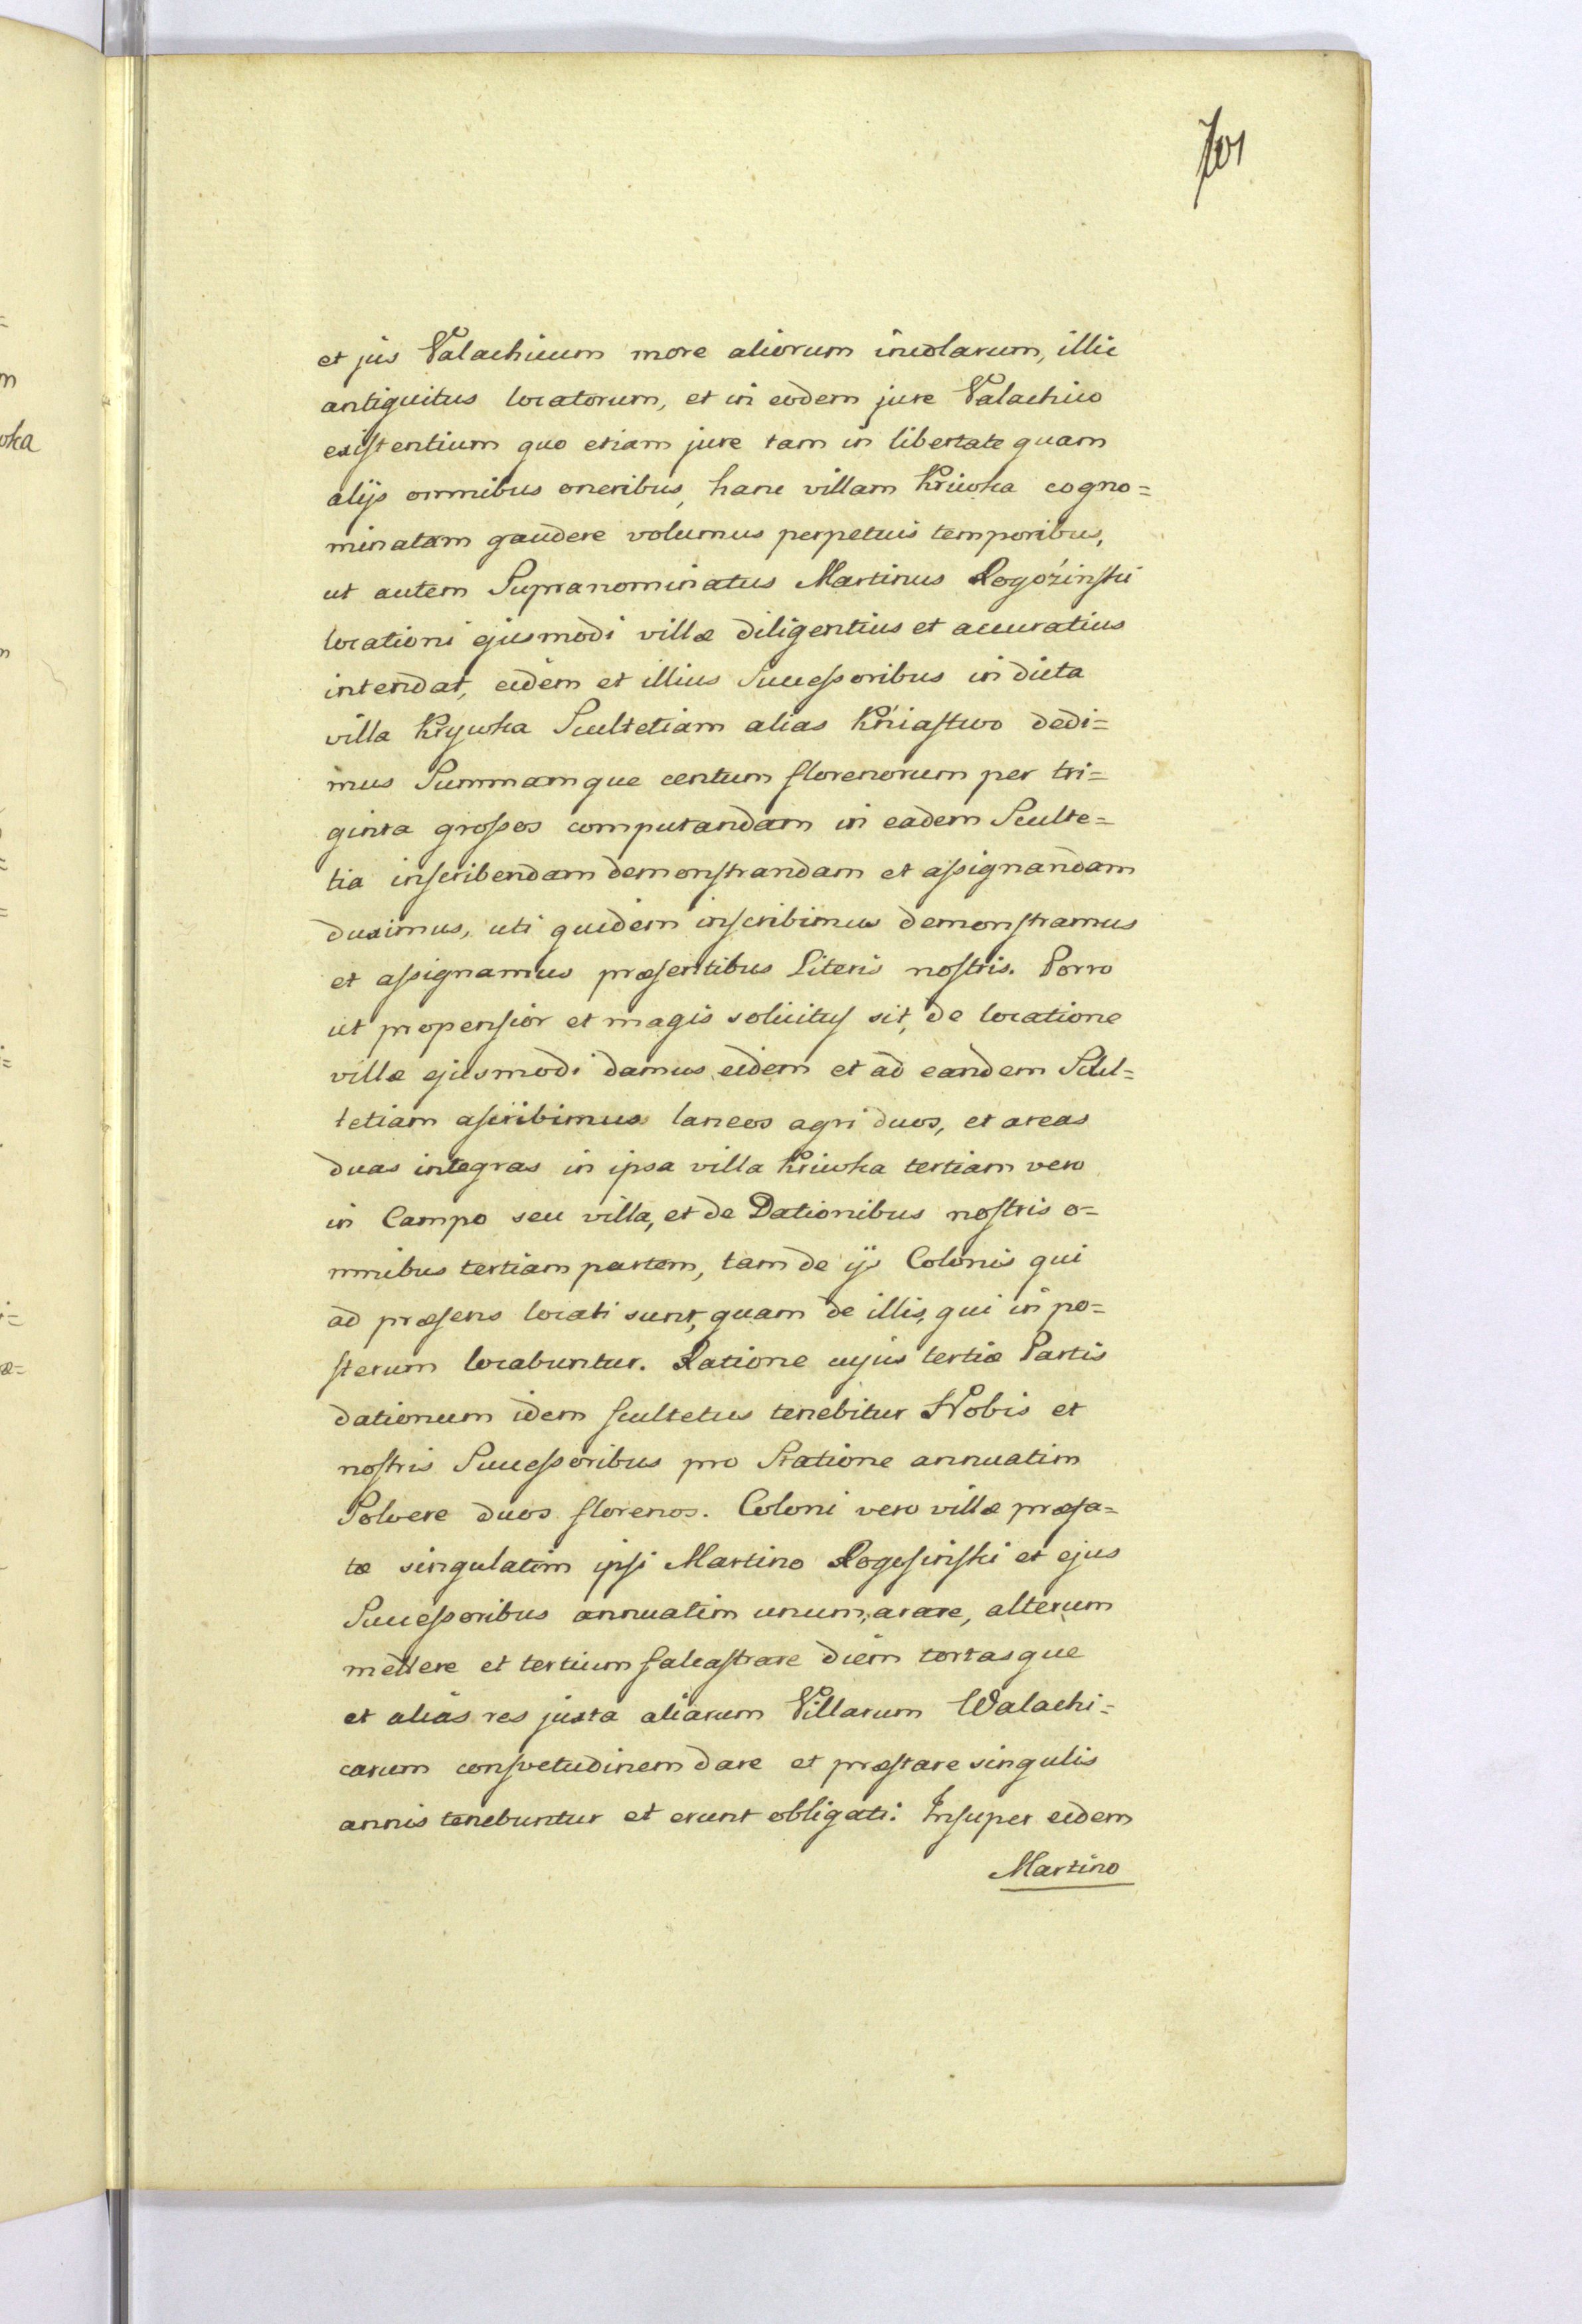 701
et jus Valachicum more aliorum incolarum, illic
antiquitus locatorum, et in eodem jure Valachico
existentium quo etiam jure tam in libertate quam
alijs omnibus oneribus, hanc villam Kriwka cogno=
minatam gaudere volumus perpetuis temporibus,
ut autem Supranominatus Martinus Rogoźinski
locationi ejusmodi villæ diligentius et accuratius
intendat, eidem et illius Successoribus in dicta
villa Krywka Scultetiam alias Kniastwo dedi=
mus Summamque centum florenorum per tri=
ginta grossos computandam in eadem Sculte=
tia inscribendam demonstrandam et assignandam
duximus, uti quidem inscribimus demonstramus
et assignamus præsentibus Literis nostris. Porro
ut propensior et magis solicitus sit, de locatione
villæ ejusmodi damus eidem et ad eandem Scul=
tetiam ascribimus laneos agri duos, et areas
duas integras in ipsa villa Kriwka tertiam vero
in Campo seu villa, et de Dationibus nostris o=
mnibus tertiam partem, tam de ijs Colonis qui
ad præsens locati sunt, quam de illis, qui in po=
sterum locabuntur. Ratione cujus tertiæ Partis
dationum idem scultetus tenebitur Nobis et
nostris Successoribus pro Statione annuatim
Solvere duos florenos. Coloni vero villæ præfa=
tæ singulatim ipsi Martino Rogosinski et ejus
Successoribus annuatim unum, arare, alterum
mettere et tertium falcastrare diem tortasque
et alias res juxta aliarum Villarum Walachi=
carum consvetudinem dare et præstare singulis
annis tenebuntur et erunt obligati. Insuper eidem
Martino